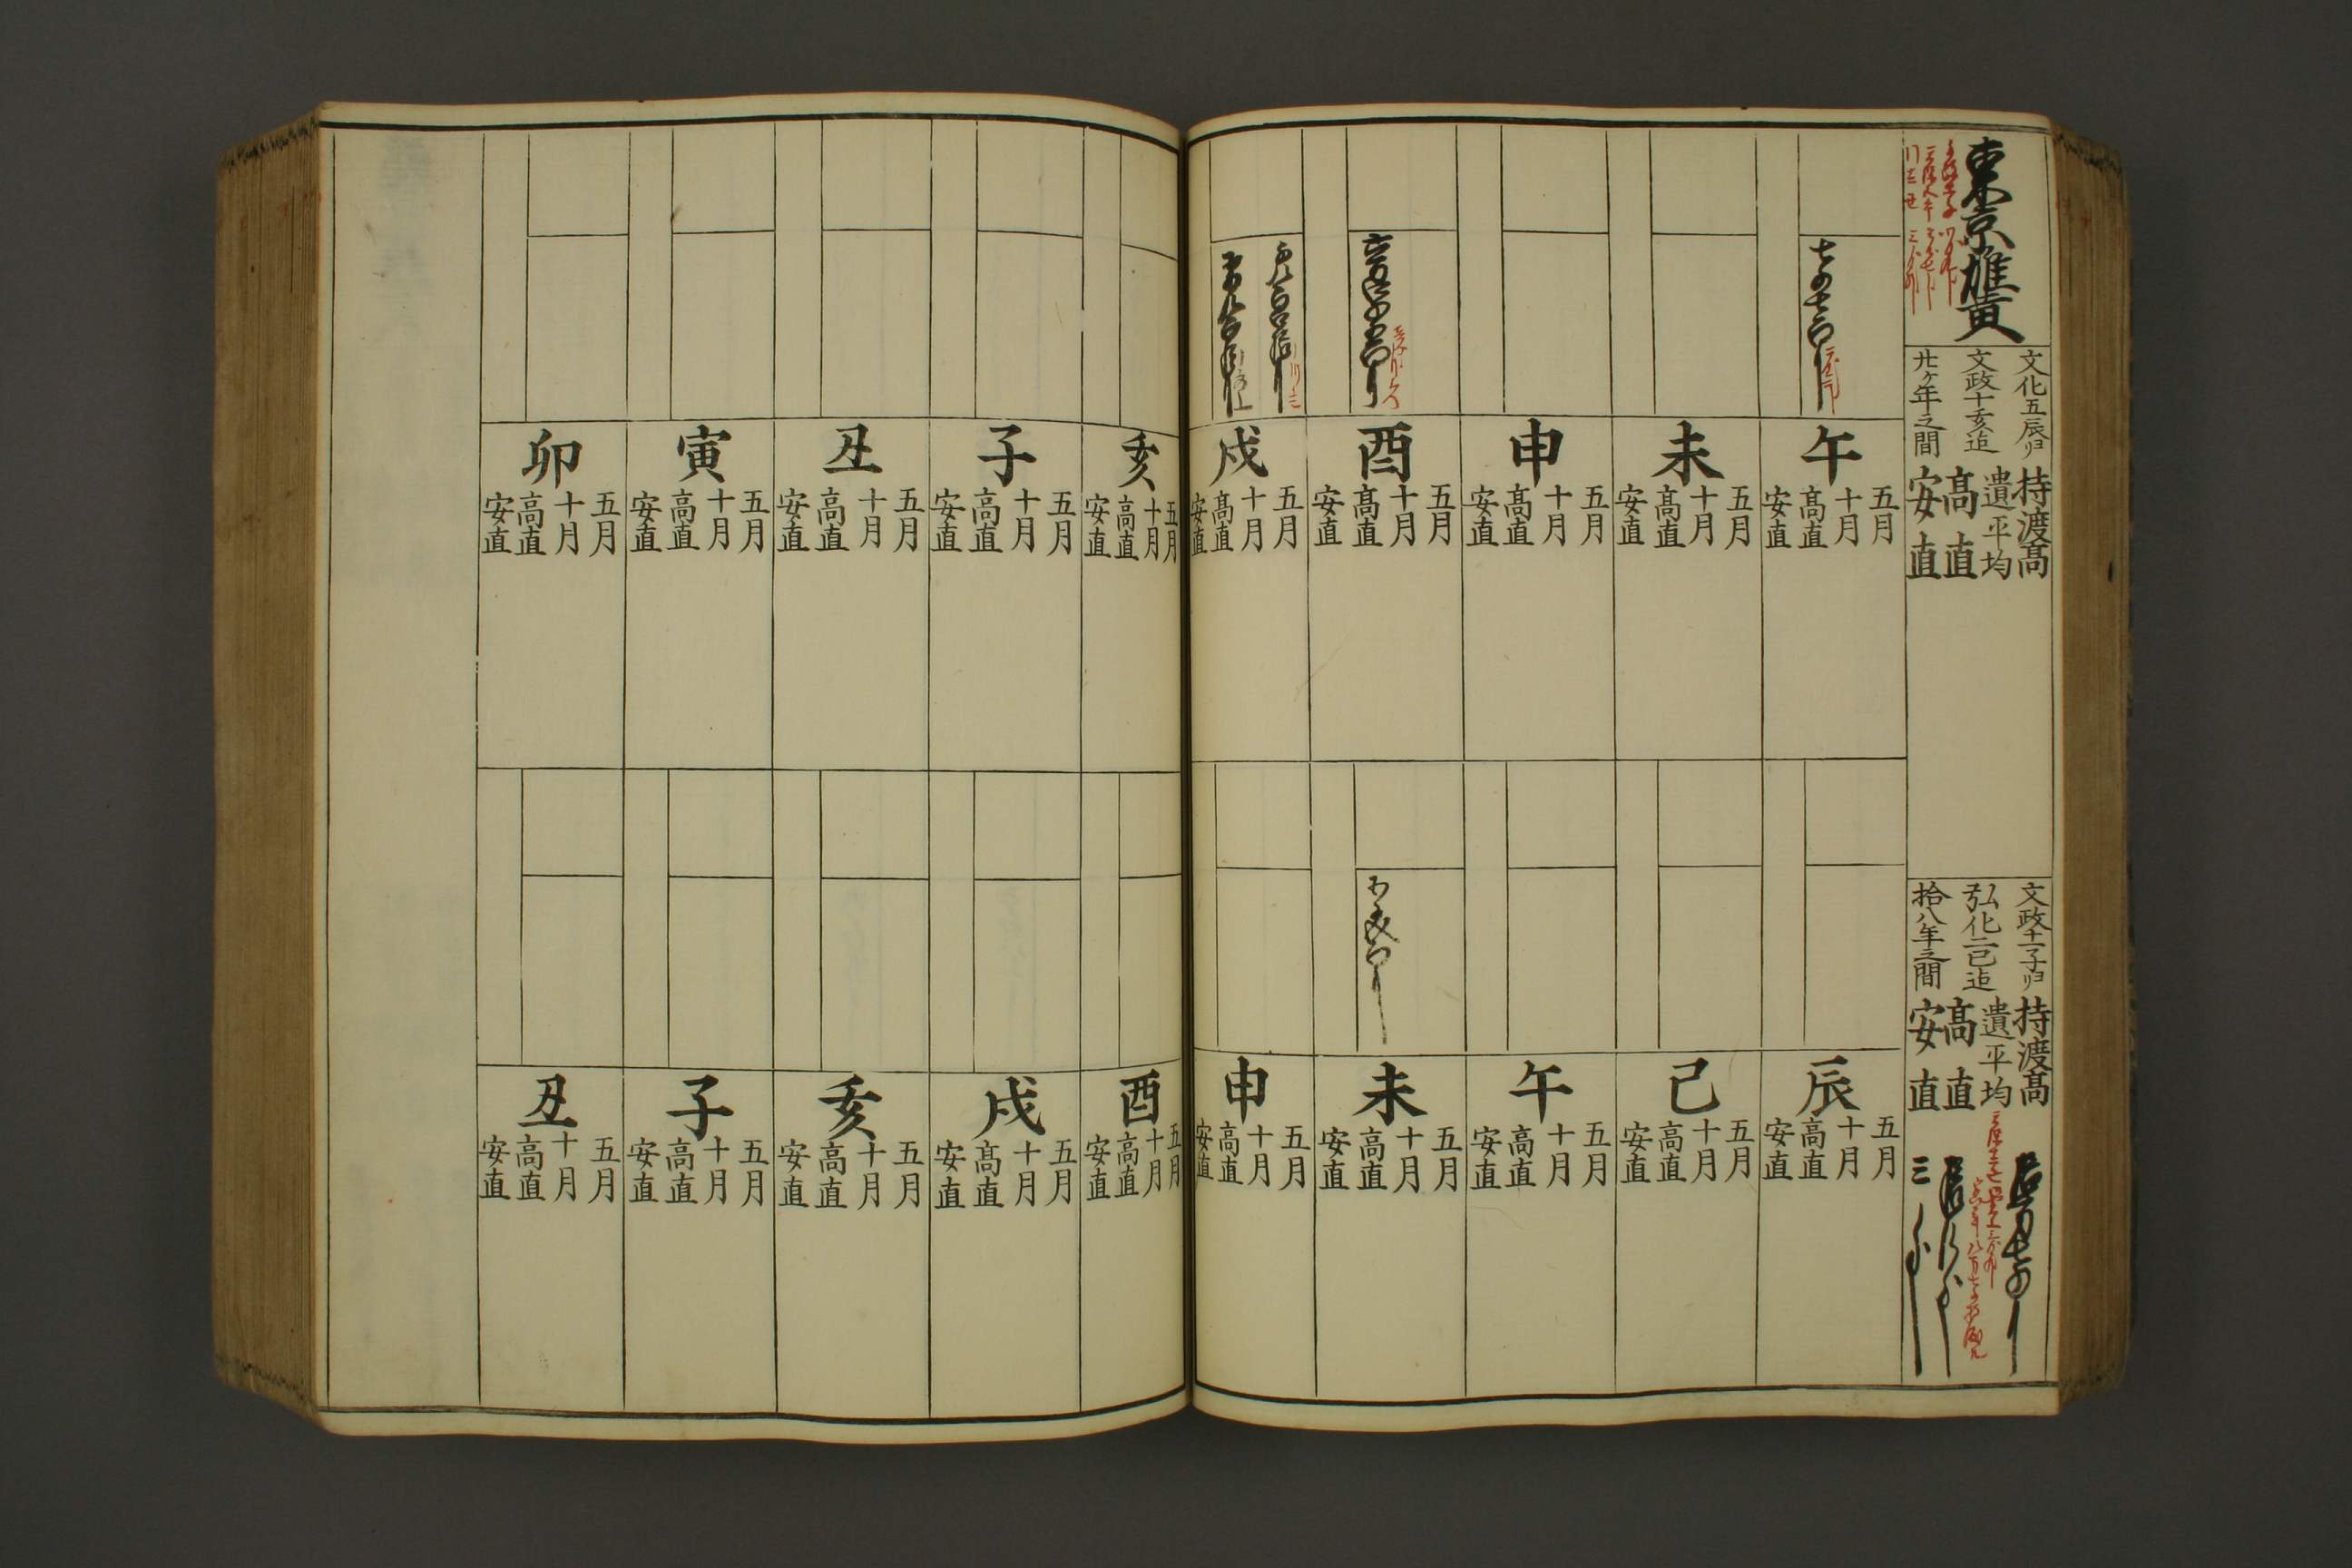 東京雄黄
文化五辰ゟ
文政十亥迄
廿ケ年之間
持渡高
遣平均
高直
安直
文政十一子ゟ
弘化二巳迄
拾八年之間
持渡高
遣平均
高直
安直
午
五月
十月
高直
安直
未
五月
十月
高直
安直
申
五月
十月
高直
安直
酉
五月
十月
高直
安直
戌
五月
十月
高直
安直
辰
五月
十月
高直
安直
巳
五月
十月
高直
安直
午
五月
十月
高直
安直
未
五月
十月
高直
安直
申
五月
十月
高直
安直
亥
五月
十月
高直
安直
子
五月
十月
高直
安直
丑
五月
十月
高直
安直
寅
五月
十月
高直
安直
卯
五月
十月
高直
安直
酉
五月
十月
高直
安直
戌
五月
十月
高直
安直
亥
五月
十月
高直
安直
子
五月
十月
高直
安直
丑
五月
十月
高直
安直